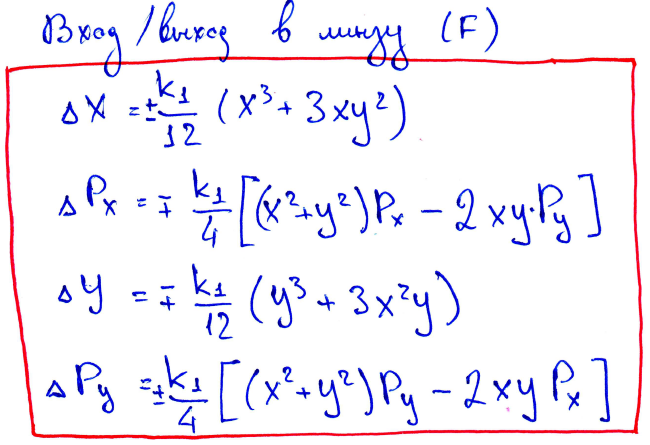 Вход/выход в линзу (F)
ΔX = ± k₁/12 (x³ + 3xy²)
ΔPx = ∓ k₁/4 [(x²+y²)Px − 2xy·Py]
Δy = ∓ k₁/12 (y³ + 3x²y)
ΔPy = ± k₁/4 [(x²+y²)Py − 2xy Px]